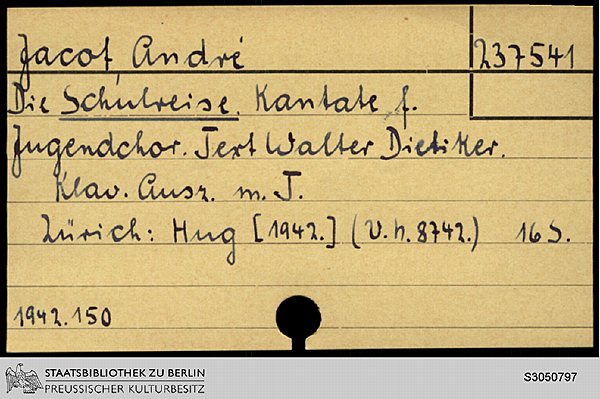 Jacot, André
237541
Die Schulreise. Kantate f.
Jugendchor. Text Walter Dietiker.
Klav. Ausz. m. T.
Zürich: Hug [1942.] (V.h. 8742.) 16 S.
1942.150
STAATSBIBLIOTHEK ZU BERLIN
PREUSSISCHER KULTURBESITZ
S3050797